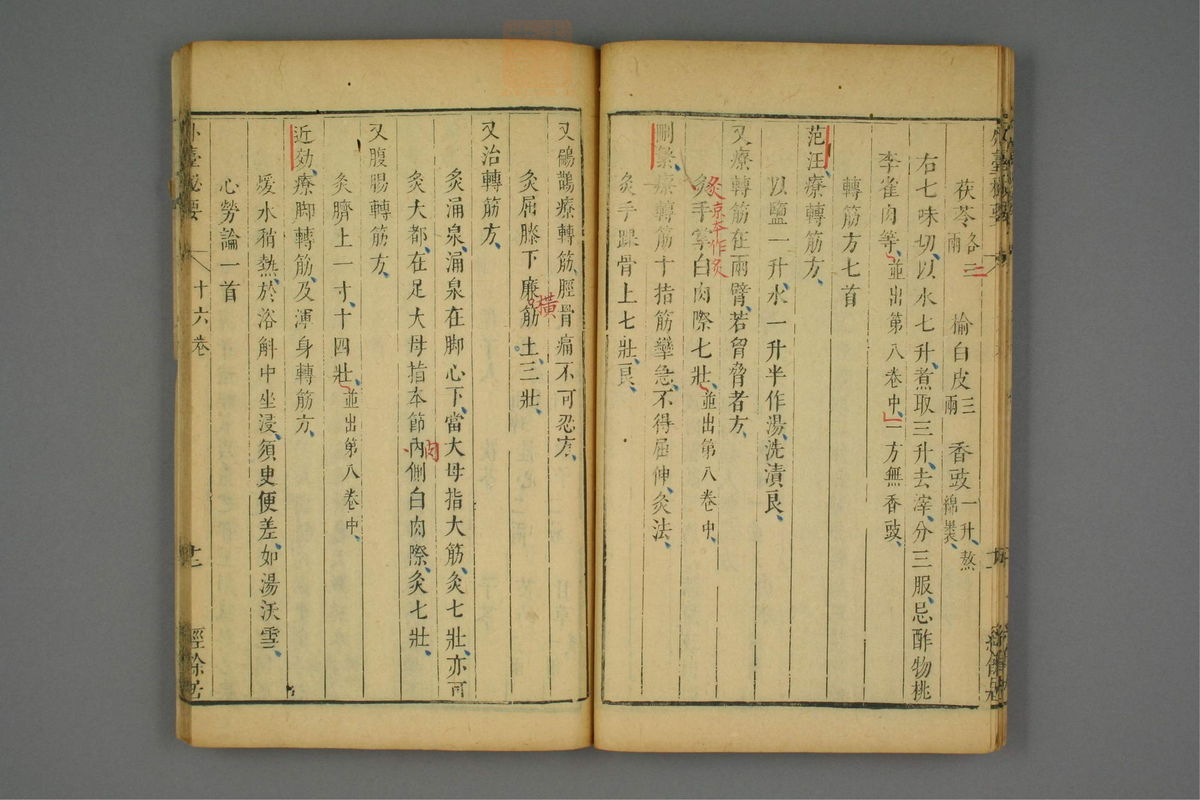 茯苓各三兩 榆白皮三兩 香豉一升、熬綿裹、
右七味切、以水七升、煮取三升、去滓、分三服、忌酢物桃
李雀肉等、並出第八卷中、一方無香豉、
轉筋方七首
范汪、療轉筋方、
以鹽一升、水一升半作湯、洗漬良、
又療轉筋在兩臂、若胷脅者方、
灸手掌白肉際七壯、並出第八卷中、
灸京本作炙
刪繁、療轉筋十指筋攣急、不得屈伸、灸法、
灸手踝骨上七壯、良、
又鷸鵲療轉筋、脛骨痛不可忍方、
灸屈膝下廉筋土、三壯、
橫
又治轉筋方、
灸涌泉、涌泉在脚心下、當大母指大筋、灸七壯、亦可
灸大都、在足大母指本節內側白肉際、灸七壯、
肉
又腹腸轉筋方、
灸臍上一寸、十四壯、並出第八卷中、
近効、療脚轉筋、及渾身轉筋方、
煖水稍熱、於浴斛中坐浸、須臾便差、如湯沃雪、
心勞論一首
外臺秘要 十六卷 十二 經餘居